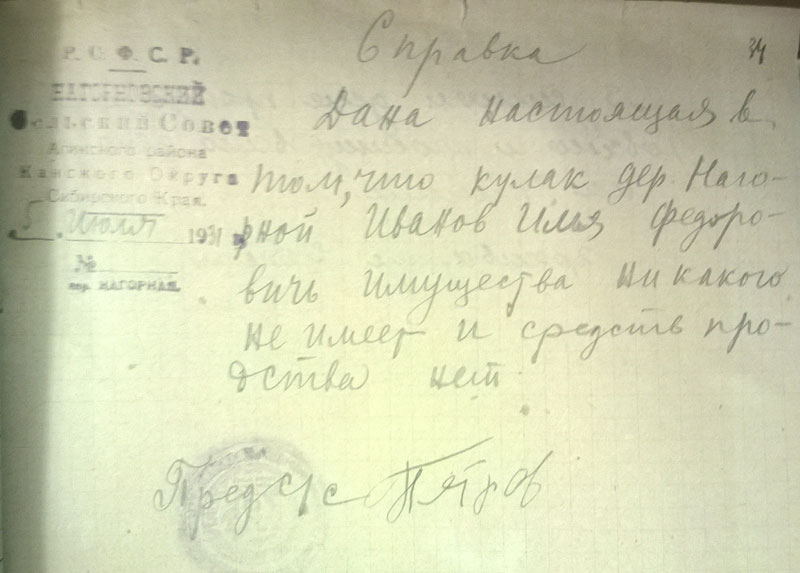 34
Справка
Р. С. Ф. С. Р.
НАГОРНОВСКИЙ
Сельский Совет
Агинского района
Канского Округа
Сибирского Края.
5 Июля 1931 г.
№
дер. НАГОРНАЯ.
Дана настоящая в
том, что кулак дер. Наго-
рной Иванов Илья Федоро-
вичь имущества никакого
не имеет и средств про-
дства нет
Пред с/с Пятров